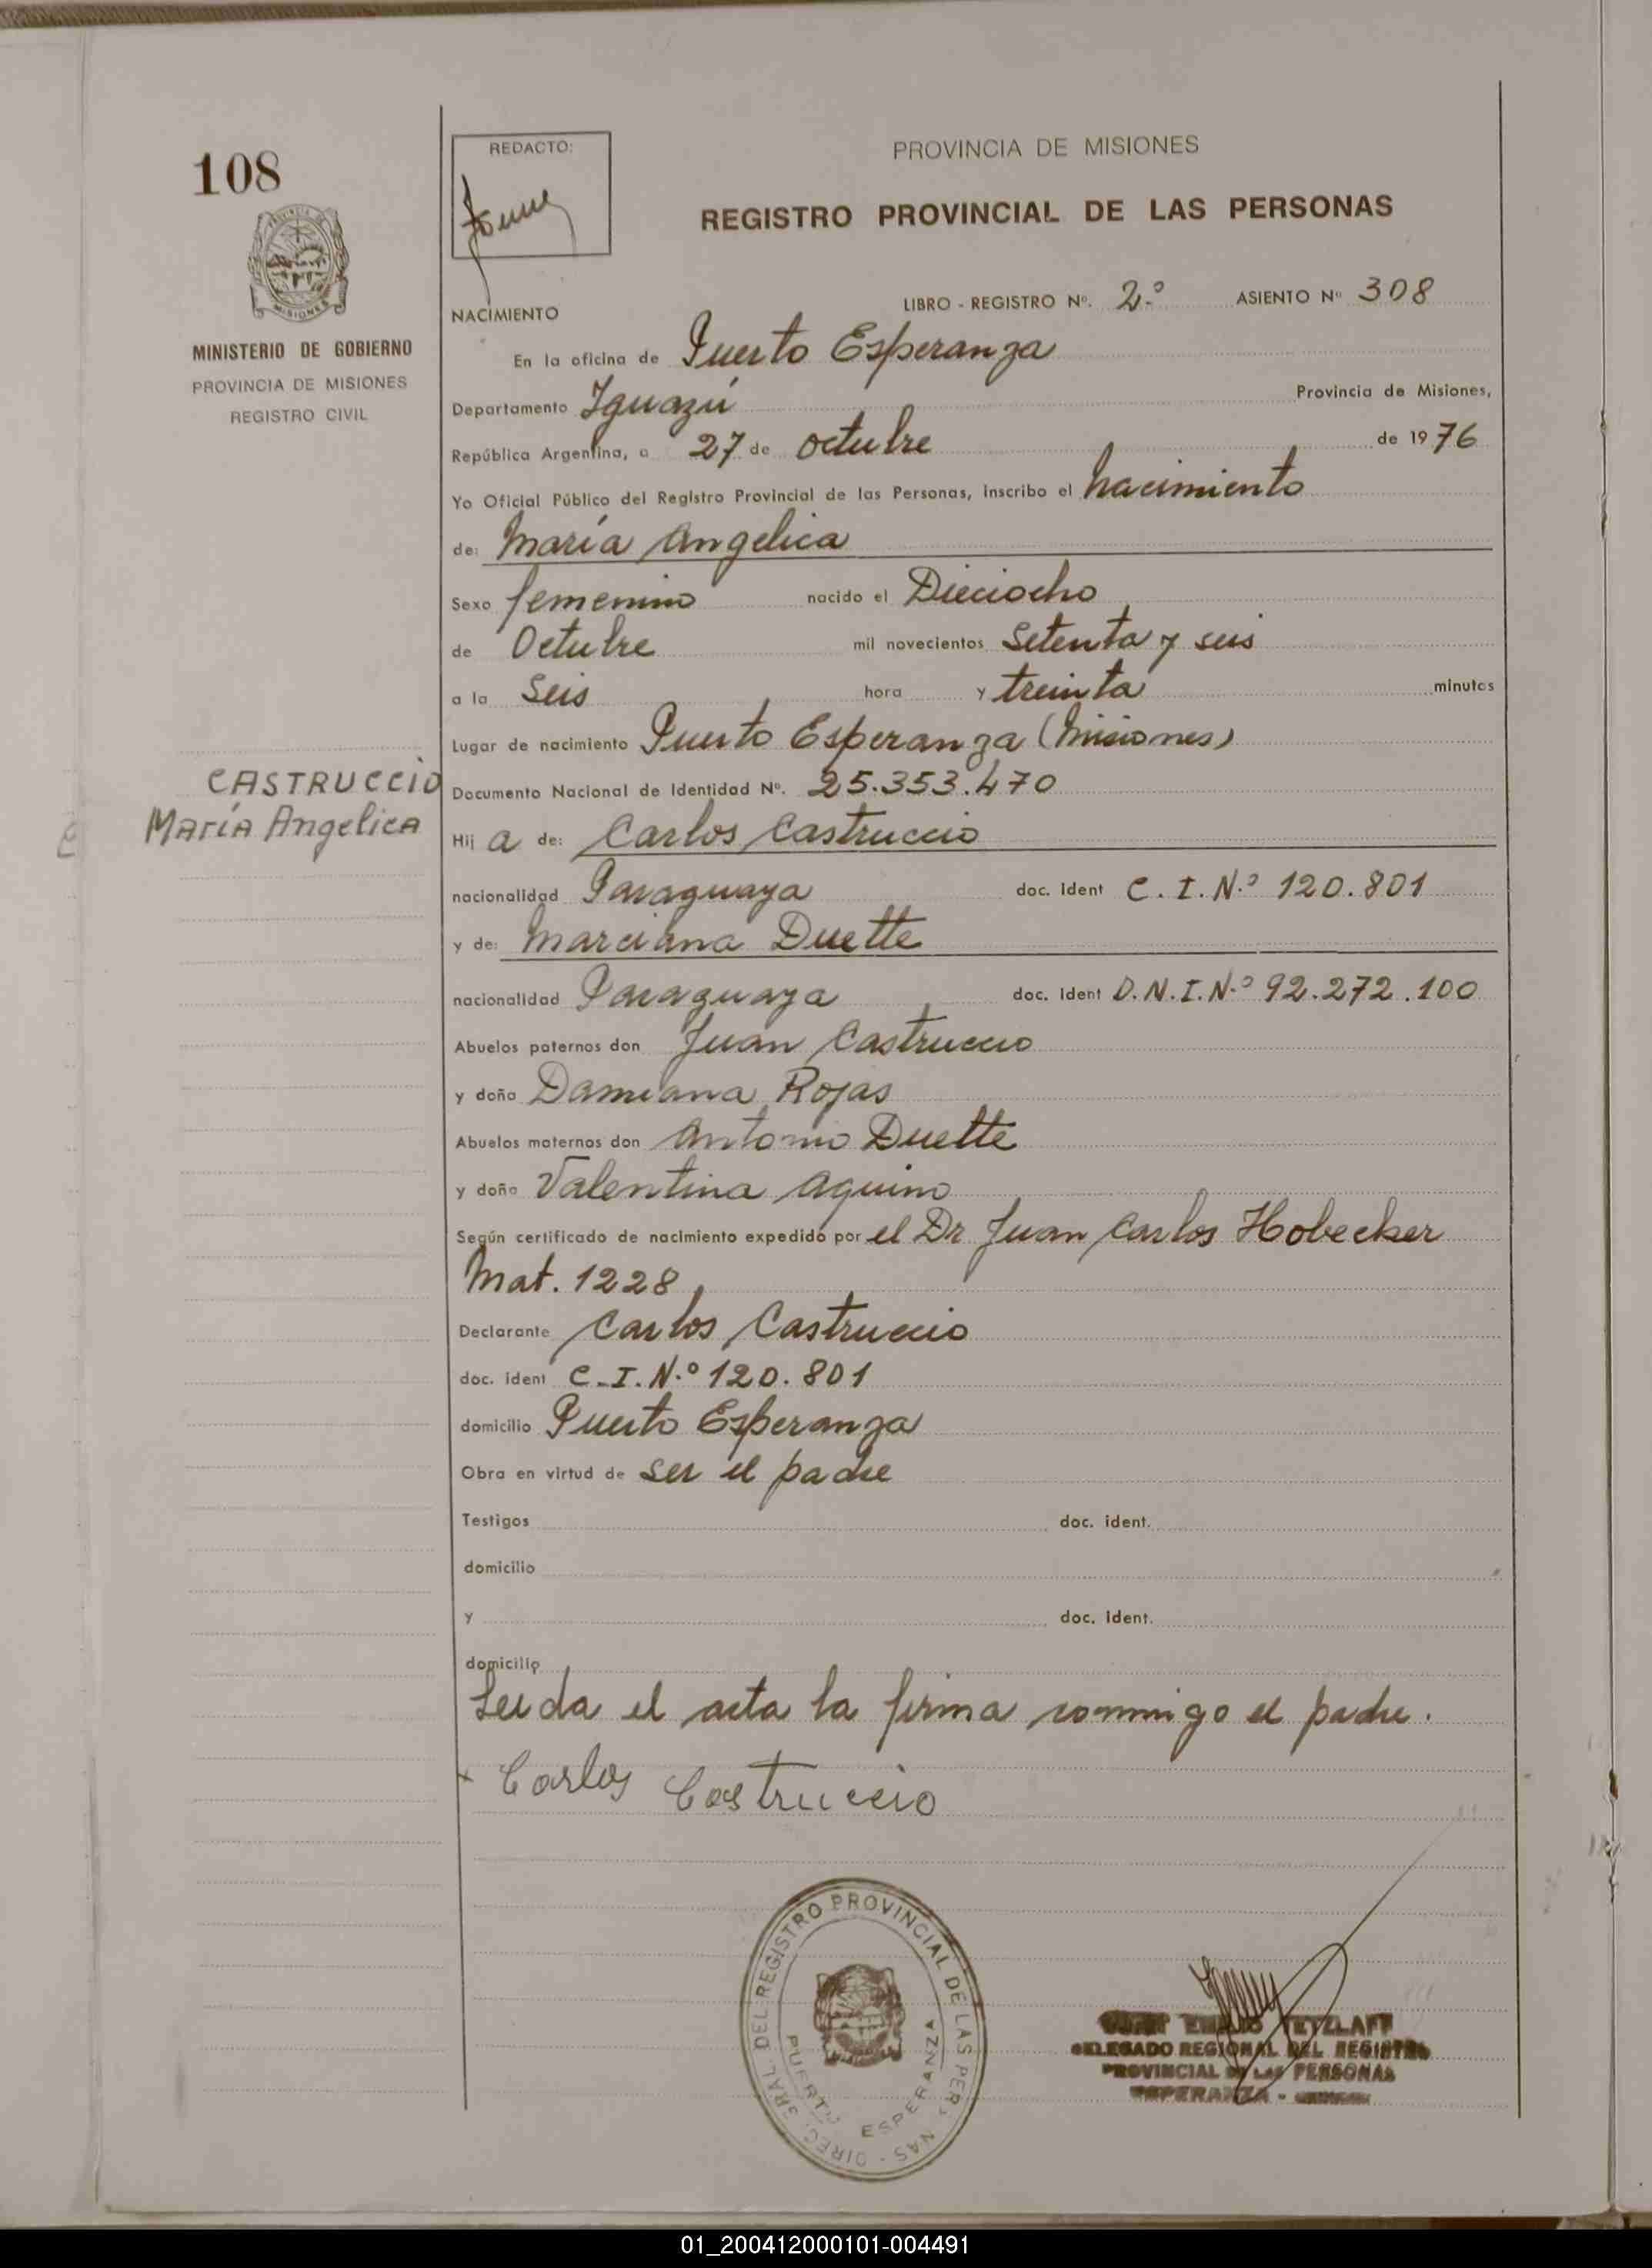 108
REDACTO:
PROVINCIA DE MISIONES
REGISTRO PROVINCIAL DE LAS PERSONAS
MINISTERIO DE GOBIERNO
PROVINCIA DE MISIONES
REGISTRO CIVIL
NACIMIENTO
LIBRO - REGISTRO Nº. 2º ASIENTO Nº 308
En la oficina de Puerto Esperanza
Departamento Iguazú Provincia de Misiones,
República Argentina, a 27 de octubre de 1976
Yo Oficial Público del Registro Provincial de las Personas, inscribo el nacimiento
de: María Angelica
Sexo femenino nacido el Dieciocho
de Octubre mil novecientos setenta y seis
a la seis hora y treinta minutos
Lugar de nacimiento Puerto Esperanza (Misiones)
CASTRUCCIO
María Angelica
Documento Nacional de Identidad Nº. 25.353.470
Hij a de: Carlos Castruccio
nacionalidad Paraguaya doc. ident C. I. N.º 120.801
y de: Marciana Duette
nacionalidad Paraguaya doc. ident D.N.I.N.º 92.272.100
Abuelos paternos don Juan Castruccio
y doña Damiana Rojas
Abuelos maternos don Antonio Duette
y doña Valentina Aquino
Según certificado de nacimiento expedido por el Dr Juan Carlos Hobecker
Mat. 1228
Declarante Carlos Castruccio
doc. ident C.I.N.º 120.801
domicilio Puerto Esperanza
Obra en virtud de ser el padre
Testigos doc. ident.
domicilio
y doc. ident.
domicilio
Leida el acta la firma conmigo el padre.
x Carlos Castruccio
REGISTRO PROVINCIAL DE LAS PERSONAS
PUERTO ESPERANZA
TETZLAFF
DELEGADO REGIONAL DEL REGISTRO
PROVINCIAL DE LAS PERSONAS
ESPERANZA -
01_200412000101-004491